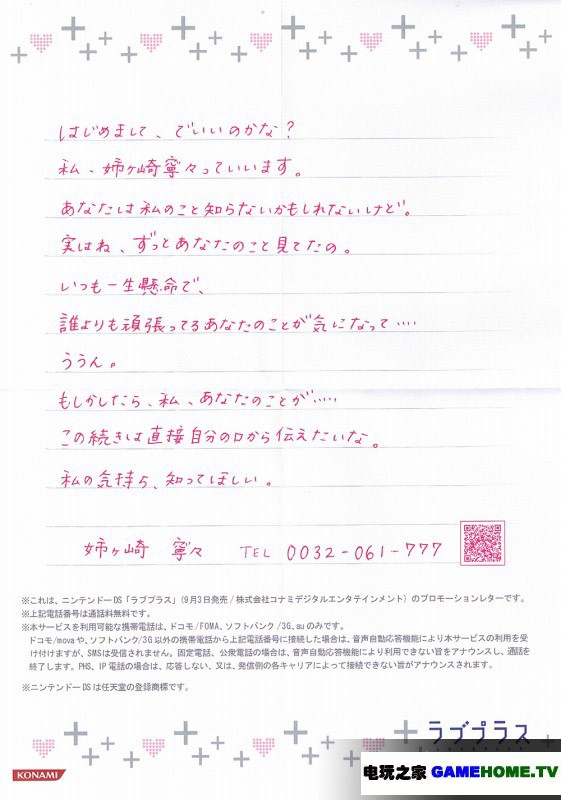 はじめまして、でいいのかな?
私、姉ヶ崎寧々っていいます。
あなたは私のこと知らないかもしれないけど。
実はね、ずっとあなたのこと見てたの。
いつも一生懸命で、
誰よりも頑張ってるあなたのことが気になって‥‥
ううん。
もしかしたら、私、あなたのことが‥‥‥
この続きは直接自分の口から伝えたいな。
私の気持ち、知ってほしい。
姉ヶ崎 寧々 TEL 0032-061-777
※これは、ニンテンドーDS「ラブプラス」(9月3日発売/株式会社コナミデジタルエンタテインメント)のプロモーションレターです。
※上記電話番号は通話料無料です。
※本サービスを利用可能な携帯電話は、ドコモ/FOMA、ソフトバンク/3G、auのみです。
ドコモ/movaや、ソフトバンク/3G以外の携帯電話から上記電話番号に接続した場合は、音声自動応答機能により本サービスの利用を受
け付けますが、SMSは受信されません。固定電話、公衆電話の場合は、音声自動応答機能により利用できない旨をアナウンスし、通話を
終了します。PHS、IP電話の場合は、応答しない、又は、発信側の各キャリアによって接続できない旨がアナウンスされます。
※ニンテンドーDSは任天堂の登録商標です。
ラブプラス
KONAMI
电玩之家 GAMEHOME.TV